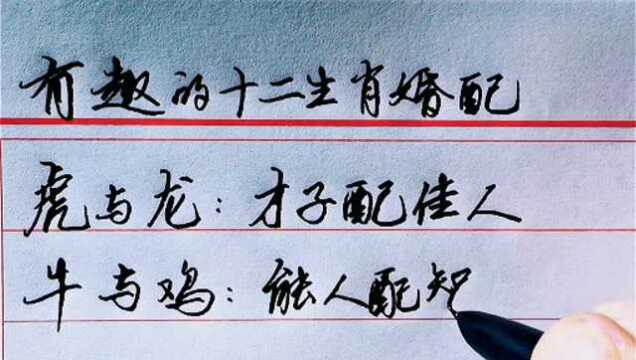 有趣的十二生肖婚配
虎与龙：才子配佳人
牛与鸡：能人配知